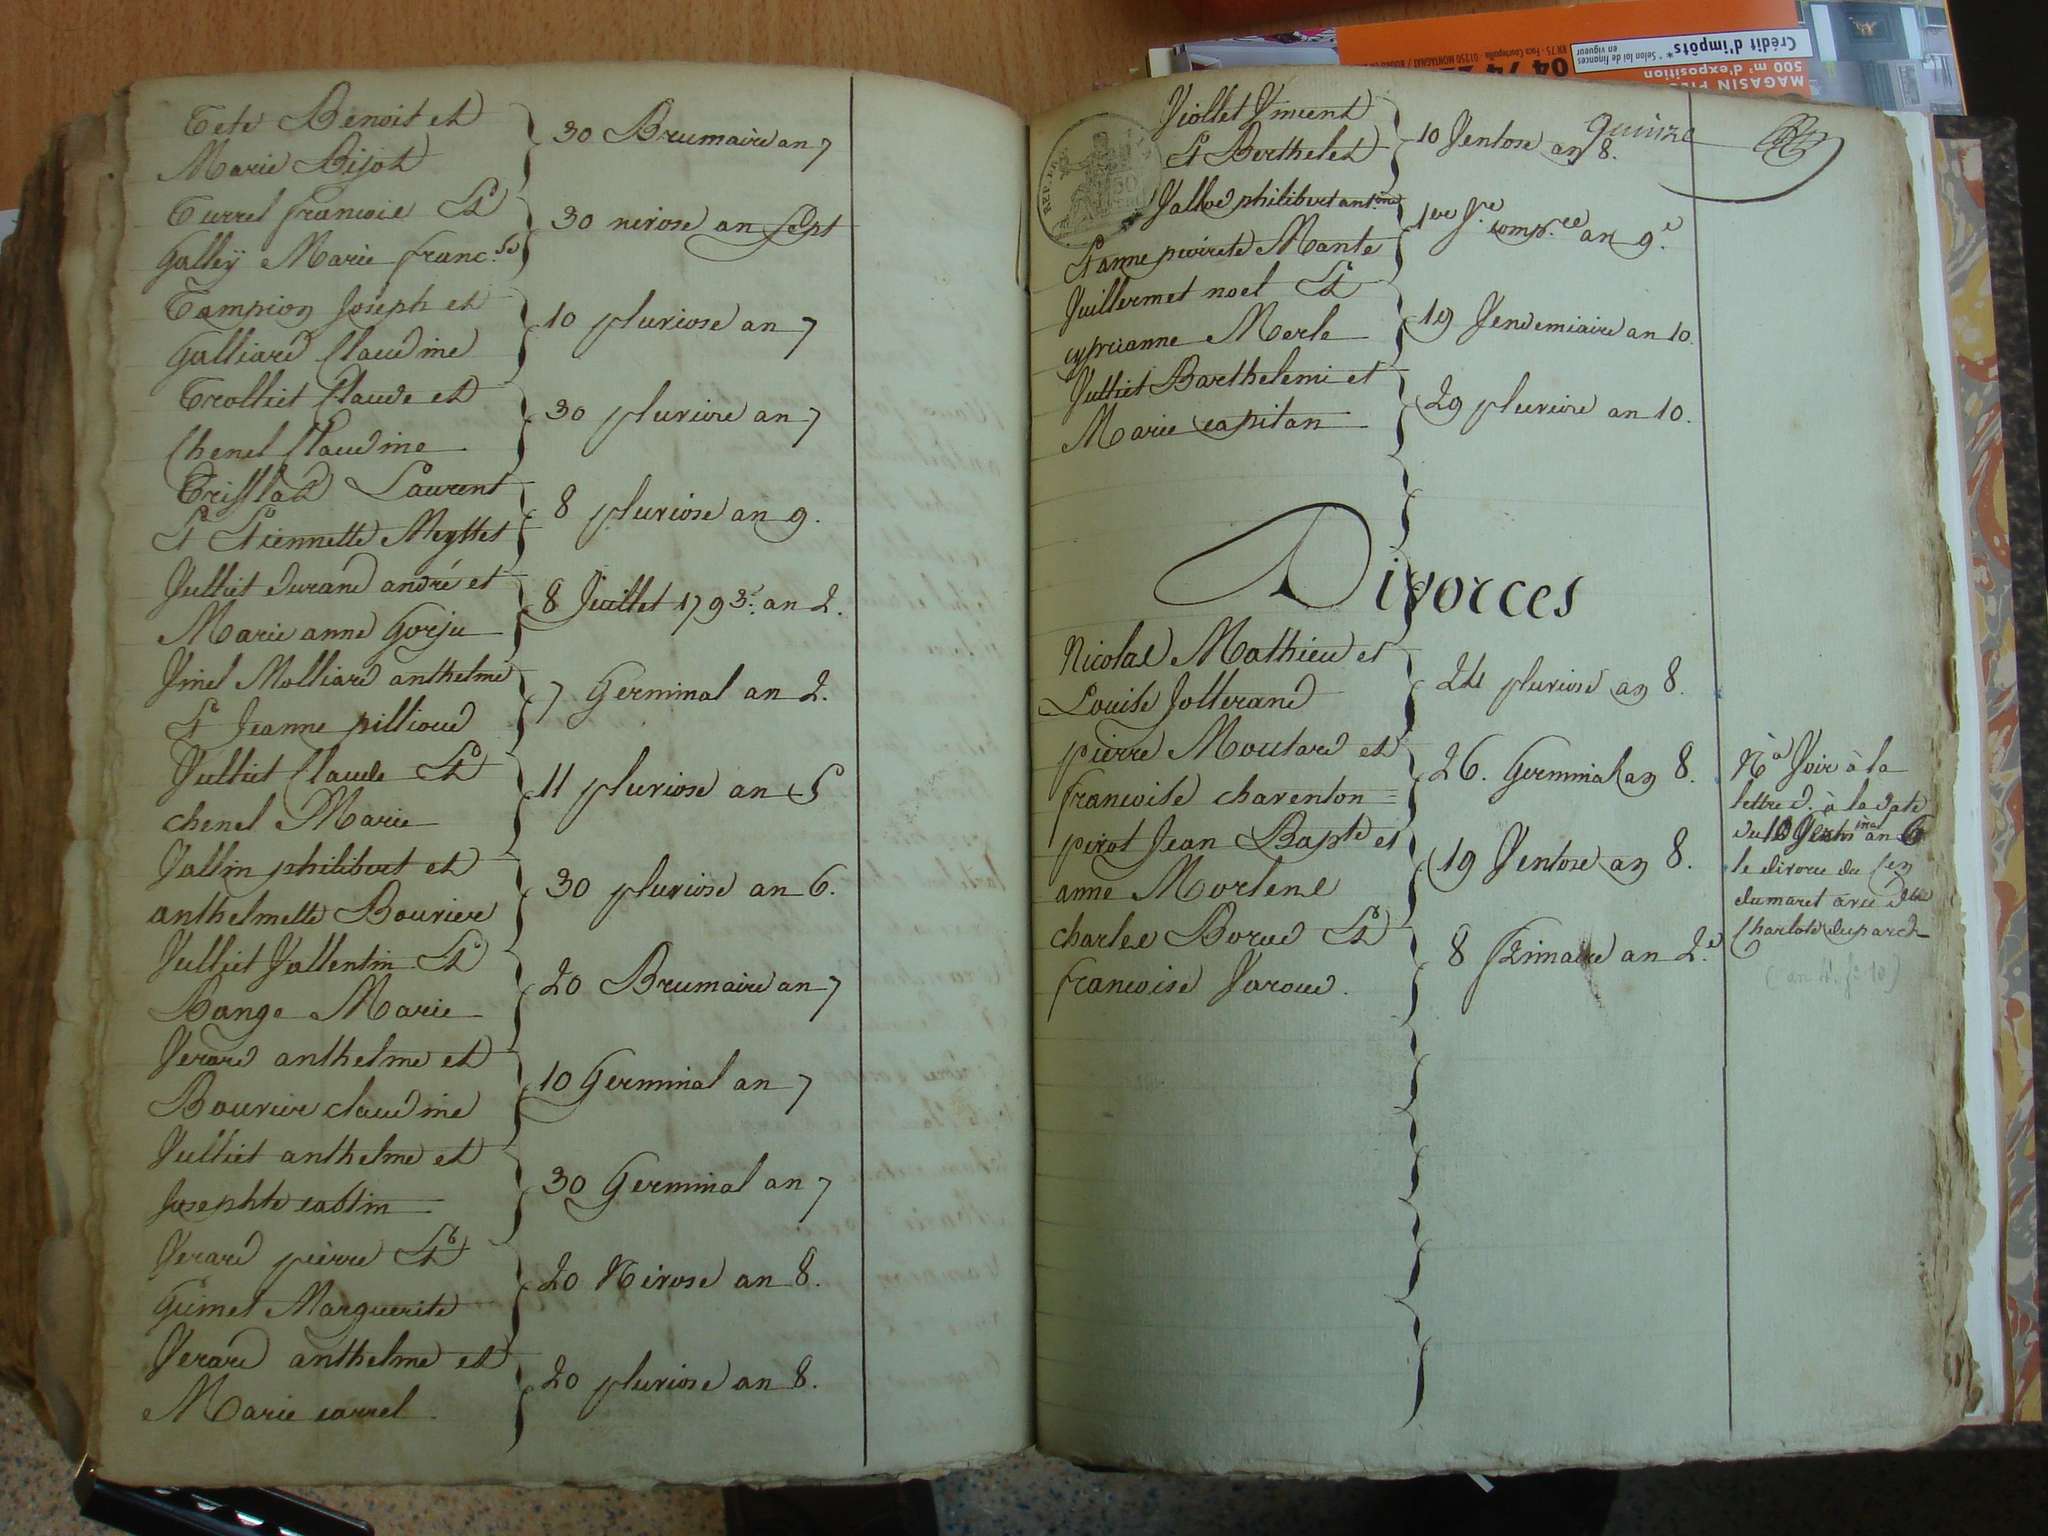 Tete Benoit et
Marie Bijot
30 Brumaire an 7
Turrel francois Et
Galley Marie franc.se
30 nivose an Sept
Tampion Joseph et
Galliard Claudine
10 pluviose an 7
Trolliet Claude et
Chenel Claudine
30 pluviose an 7
Laurent
Et Etiennette Meyttet
8 pluviose an 9.
Vulliet durand andré et
Marie anne Gorju
8 Juillet 1793. an 2.
Vinel Molliard anthelme
Et Jeanne pillioud
7 Germinal an 2.
Vulliet Claude Et
chenel Marie
11 pluviose an 5
Vallin philibert et
anthelmette Bouvier
30 pluviose an 6.
Vulliet Vallentin Et
Bange Marie
20 Brumaire an 7
Verard anthelme et
Bouvier claudine
10 Germinal an 7
Vulliet anthelme et
Josephte castin
30 Germinal an 7
Verard pierre Et
Guinet Marguerite
20 Nivose an 8.
Verard anthelme et
Marie carrel.
20 pluviose an 8.
quinze
Viollet Vincent
Et Berthelet
10 Ventose an 8.
REP. FR.
50
Vallod philibert ant.me
Et anne peirrete Mante
1er J.re comp.re an 9.e
Vuillermet noel Et
cyprianne Merle
19 Vendemiaire an 10.
Vulliet Barthelemi et
Marie capitan
29 pluviose an 10.
Divorces
Nicolas Mathieu et
Louise Jotterand
24 pluviose an 8.
pierre Moutard et
francoise charenton =
26. Germinal an 8.
pirot Jean Bapte et
anne Morlene
19 Ventose an 8.
charles Borud Et
francoise Varoud.
8 frimaire an 2.d
Na Voir à la
lettre d. à la date
du 10 an 6
le divorce du Cen
dumaret avec dlle
Charlote duparch
(an 4. f. 10)
Crédit d'impôts
* Selon loi de finances
en vigueur
500 m² d'exposition
01250 MONTAGNAT
04 74